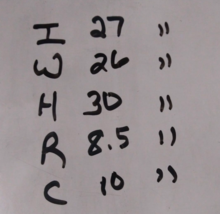 I 27 "
W 26 "
H 30 "
R 8.5 "
C 10 "